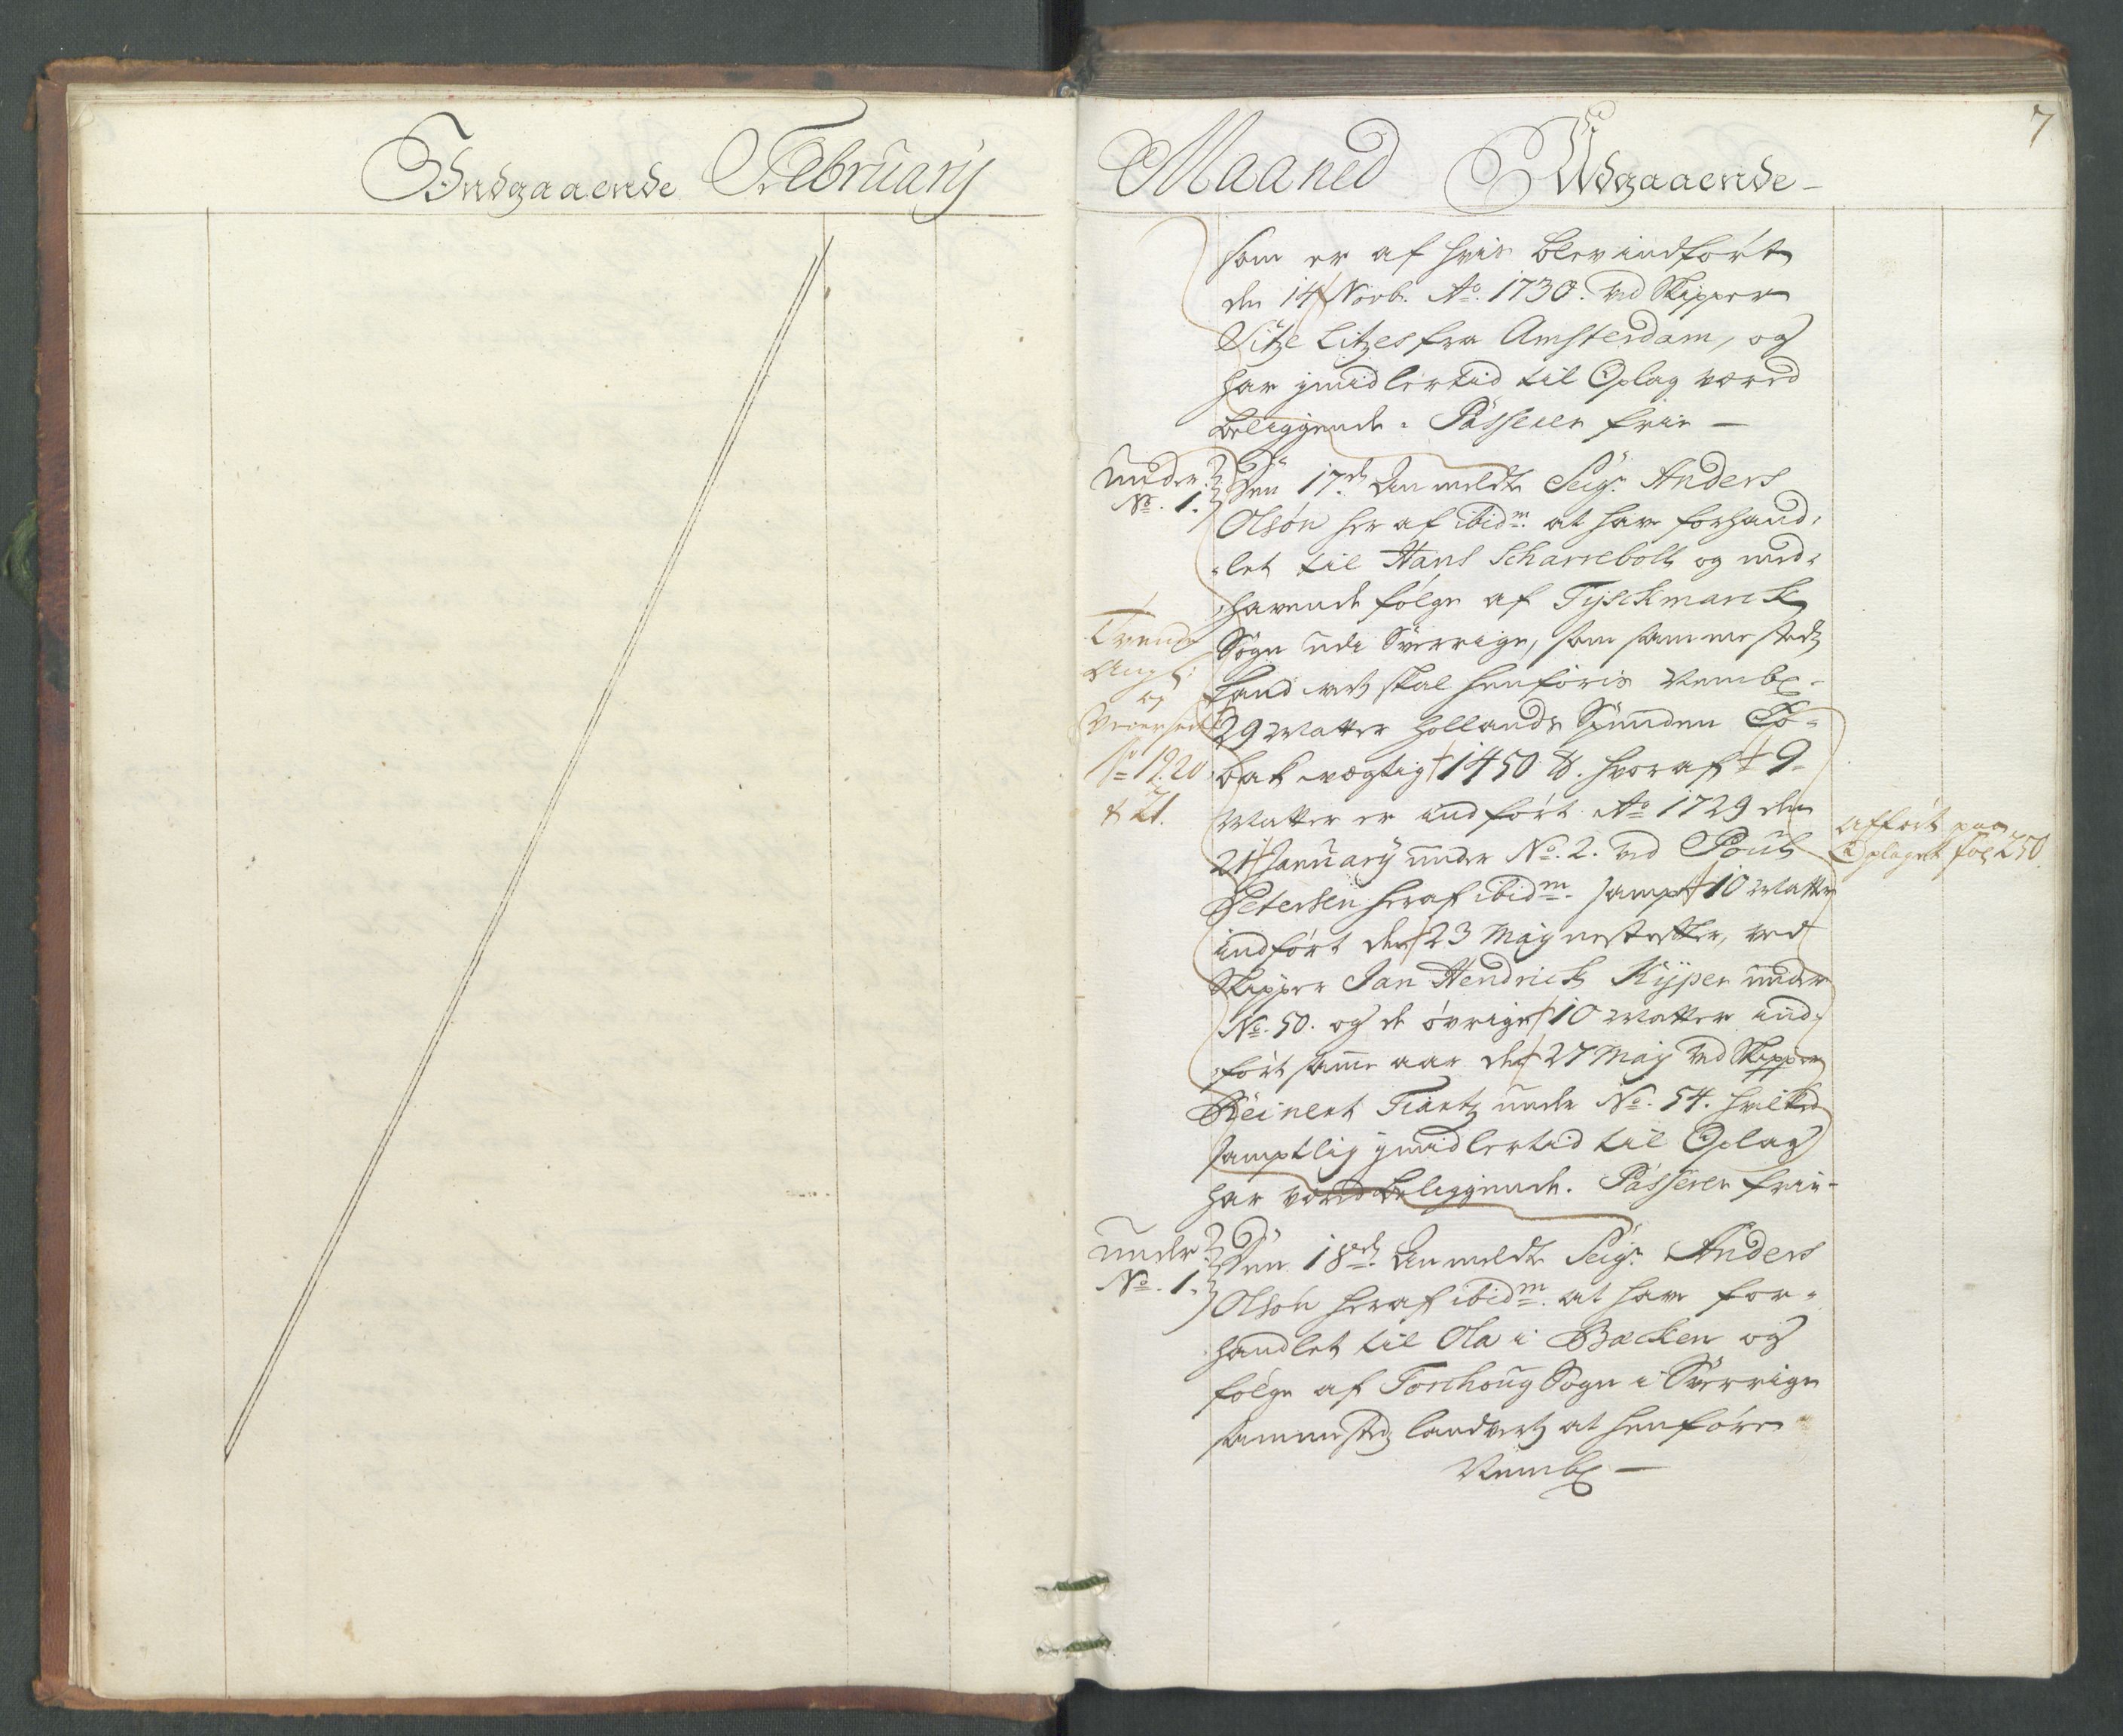 Indgaaende February
Maaned Udgaaende
7
som er af hvis blev indført
den 14 Novb. Ao. 1730. ved Skipper
Sitze Litzes fra Amsterdam, og
har jmidlertid til Oplag værred
beliggende. Passerer frie
under
No. 1.
Den 17de Anmeldte Seigr. Anders
Olsøn her af ibidm. at have forhand-
let til Hans Scharrebolt og med-
havende følge af Tyschmarck
Sogn udi Sverrige, som sammesteds
Landverts skal henføris Nembl.
29 Matter Hollands Spunden To-
bak vægtig 1450 lb. hvoraf 9
Matter er indført Ao 1729 den
21 January under No. 2. ved Pouls
Petersen heraf ibidm. sampt 10 Matter
indført den 23 Maij nestefter, ved
Skipper Jan Hendrick Kyper under
No. 50. og de øvrige 10 Matter ind-
ført samme aar den 27 Maij ved Skipper
Reinert Tiantz under No. 54. hvilked
samptlig jmidlertid til Oplag
har værred beliggende. Passerer frie
og
No 19. 20
& 21.
afført paa
Oplaget fol 250
under
No. 1.
Den 18de Anmeldte Seigr. Anders
Olsøn heraf ibidm. at have for-
handlet til Ola i Backen og
følge af Torchoug Sogn i Sverrige
sammesteds landverts at henføre
Nembl